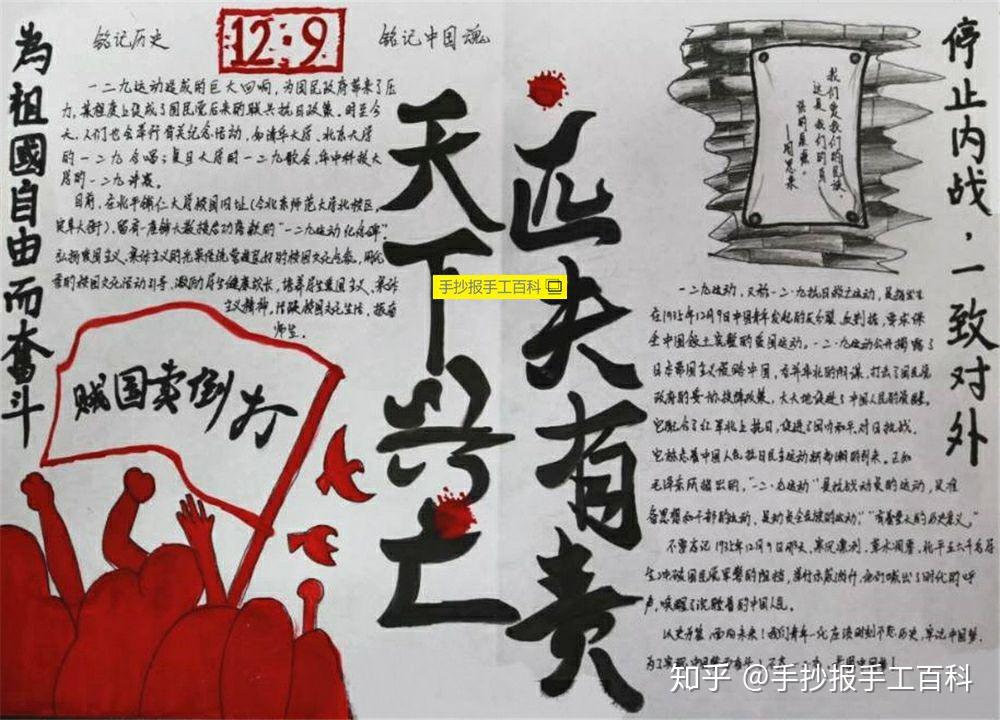 为祖國自由而奮斗
铭记历史
12:9
铭记中国魂
一二九运动造成的巨大回响,为国民政府带来了压
力,某程度上促成了国民党后来的联共抗日政策。时至今
天,人们也会举行有关纪念活动,如清华大学、北京大学
的一二九合唱;复旦大学的一二九歌会,华中科技大
学的一二九诗歌。
目前,在北平辅仁大学校园旧址(今北京师范大学北校区,
定阜大街),留有一座镌
启功
的"一二九运动纪念碑"。
弘扬爱国主义、集体主义的光荣传统
的校园文化
的校园文化活动引导,激励学生健康成长,培养学生爱国主义、集体
主义精神,活跃校园文化生活,振奋
师生。
贼国卖倒打
天下兴亡
匹夫有责
手抄报手工百科
我们爱我们的民族,
这是我们自
信的源泉。
—周恩来
停止内战,一致对外
一二九运动,又称一二·九抗日救亡运动,是指发生
在1935年12月9日中国青年发起的反分裂、反
,要求保
全中国领土完整的爱国运动。一二·九运动公开揭露了
日本帝国主义侵略中国,吞并华北的阴谋,打击了国民党
政府的妥协投降政策,大大地促进了中国人民的觉醒。
它配合了红军北上抗日,促进了国内和平对日抗战。
它标志着中国人民抗日民主运动新高潮的到来。正如
毛泽东所指出的,"一二·九运动"是抗战动员的运动,是准
备思想和干部的运动,是动员全民族的运动,""有着重大的历史意义。"
不要忘记1935年12月9日那天,寒风凛冽,草木凋零,北平五六千名学
生冲破国民党军警的阻挡,举行示威游行,他们喊出了时代的呼
声,唤醒了沉睡着的中国人民。
以史为鉴,面向未来!我们青年一代应该时刻不忘历史,牢记中国梦,
知乎 @手抄报手工百科